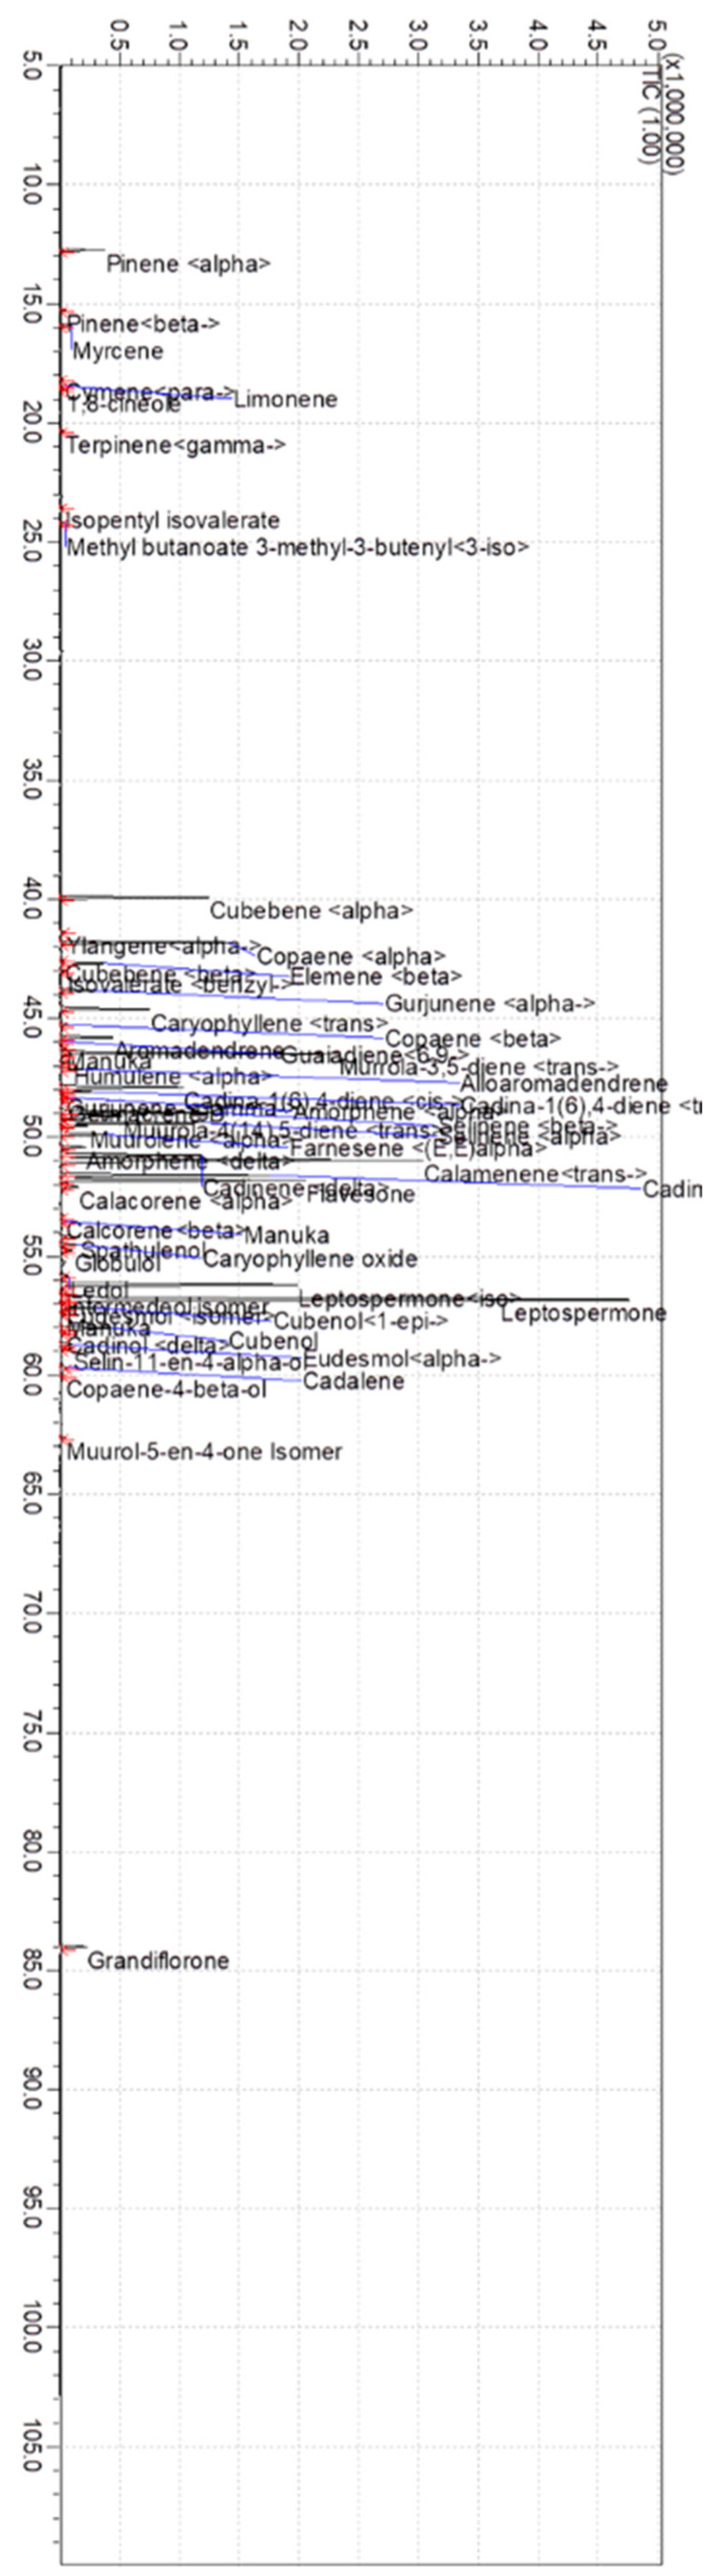 (x1,000,000)
TIC (1.00)
0.5
1.0
1.5
2.0
2.5
3.0
3.5
4.0
4.5
5.0
5.0
10.0
Pinene <alpha>
15.0
Pinene<beta->
Myrcene
Cymene<para->
Limonene
1,8-cineole
20.0
Terpinene<gamma->
Isopentyl isovalerate
25.0
Methyl butanoate 3-methyl-3-butenyl<3-iso>
30.0
35.0
40.0
Cubebene <alpha>
Ylangene<alpha->
Copaene <alpha>
Cubebene <beta>
Elemene <beta>
Isovalerate <benzyl->
Gurjunene <alpha->
45.0
Caryophyllene <trans>
Copaene <beta>
Aromadendrene
Guaiadiene<6,9->
Manuka
Murrola-3,5-diene <trans->
Humulene <alpha>
Alloaromadendrene
Cadina-1(6),4-diene <cis->
Cadina-1(6),4-diene <t
Amorphene <alpha>
Selinene <beta->
Muurola-4(14),5-diene <trans->
Selinene <alpha>
50.0
Muurolene <alpha>
Farnesene <(E,E)alpha>
Amorphene <delta>
Calamenene<trans->
Cadinene <delta>
Flavesone
Cadin
Calacorene <alpha>
Calcorene <beta>
Manuka
Spathulenol
Globulol
Caryophyllene oxide
55.0
Ledol
Leptospermone<iso>
Intermedeol isomer
Leptospermone
Eudesmol <isomer>
Cubenol<1-epi->
Manuka
Cubenol
Cadinol <delta>
Selin-11-en-4-alpha-ol
Eudesmol<alpha->
60.0
Cadalene
Copaene-4-beta-ol
Muurol-5-en-4-one Isomer
65.0
70.0
75.0
80.0
85.0
Grandiflorone
90.0
95.0
100.0
105.0